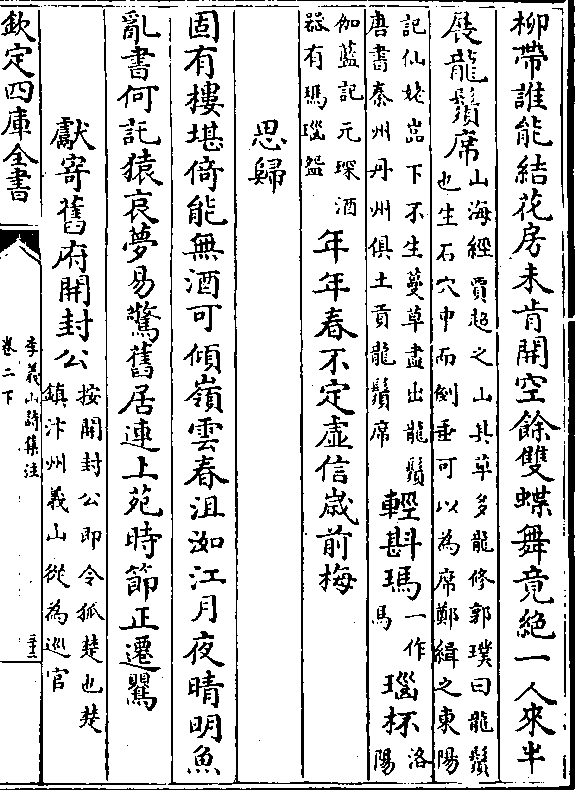 柳帶誰能結花房未肯開空餘雙蝶舞竟絶一人來半
展龍鬚席山海經賈超之山其草多龍修郭璞曰龍鬚
也生石穴中而倒垂可以為席鄭緝之東陽
記仙姥嵓下不生蔓草盡出龍鬚
唐書秦州丹州俱土貢龍鬚席
輕斟瑪一作
馬
瑙杯洛
陽
伽藍記元琛酒
器有瑪瑙盌
年年春不定虛信歲前梅
思歸
固有樓堪倚能無酒可傾嶺雲春沮洳江月夜晴明魚
亂書何託猿哀夢易驚舊居連上苑時節正遷鸎
獻寄舊府開封公按開封公即令狐楚也楚
鎮汴州義山從為巡官
欽定四庫全書
李義山詩集注
卷二下